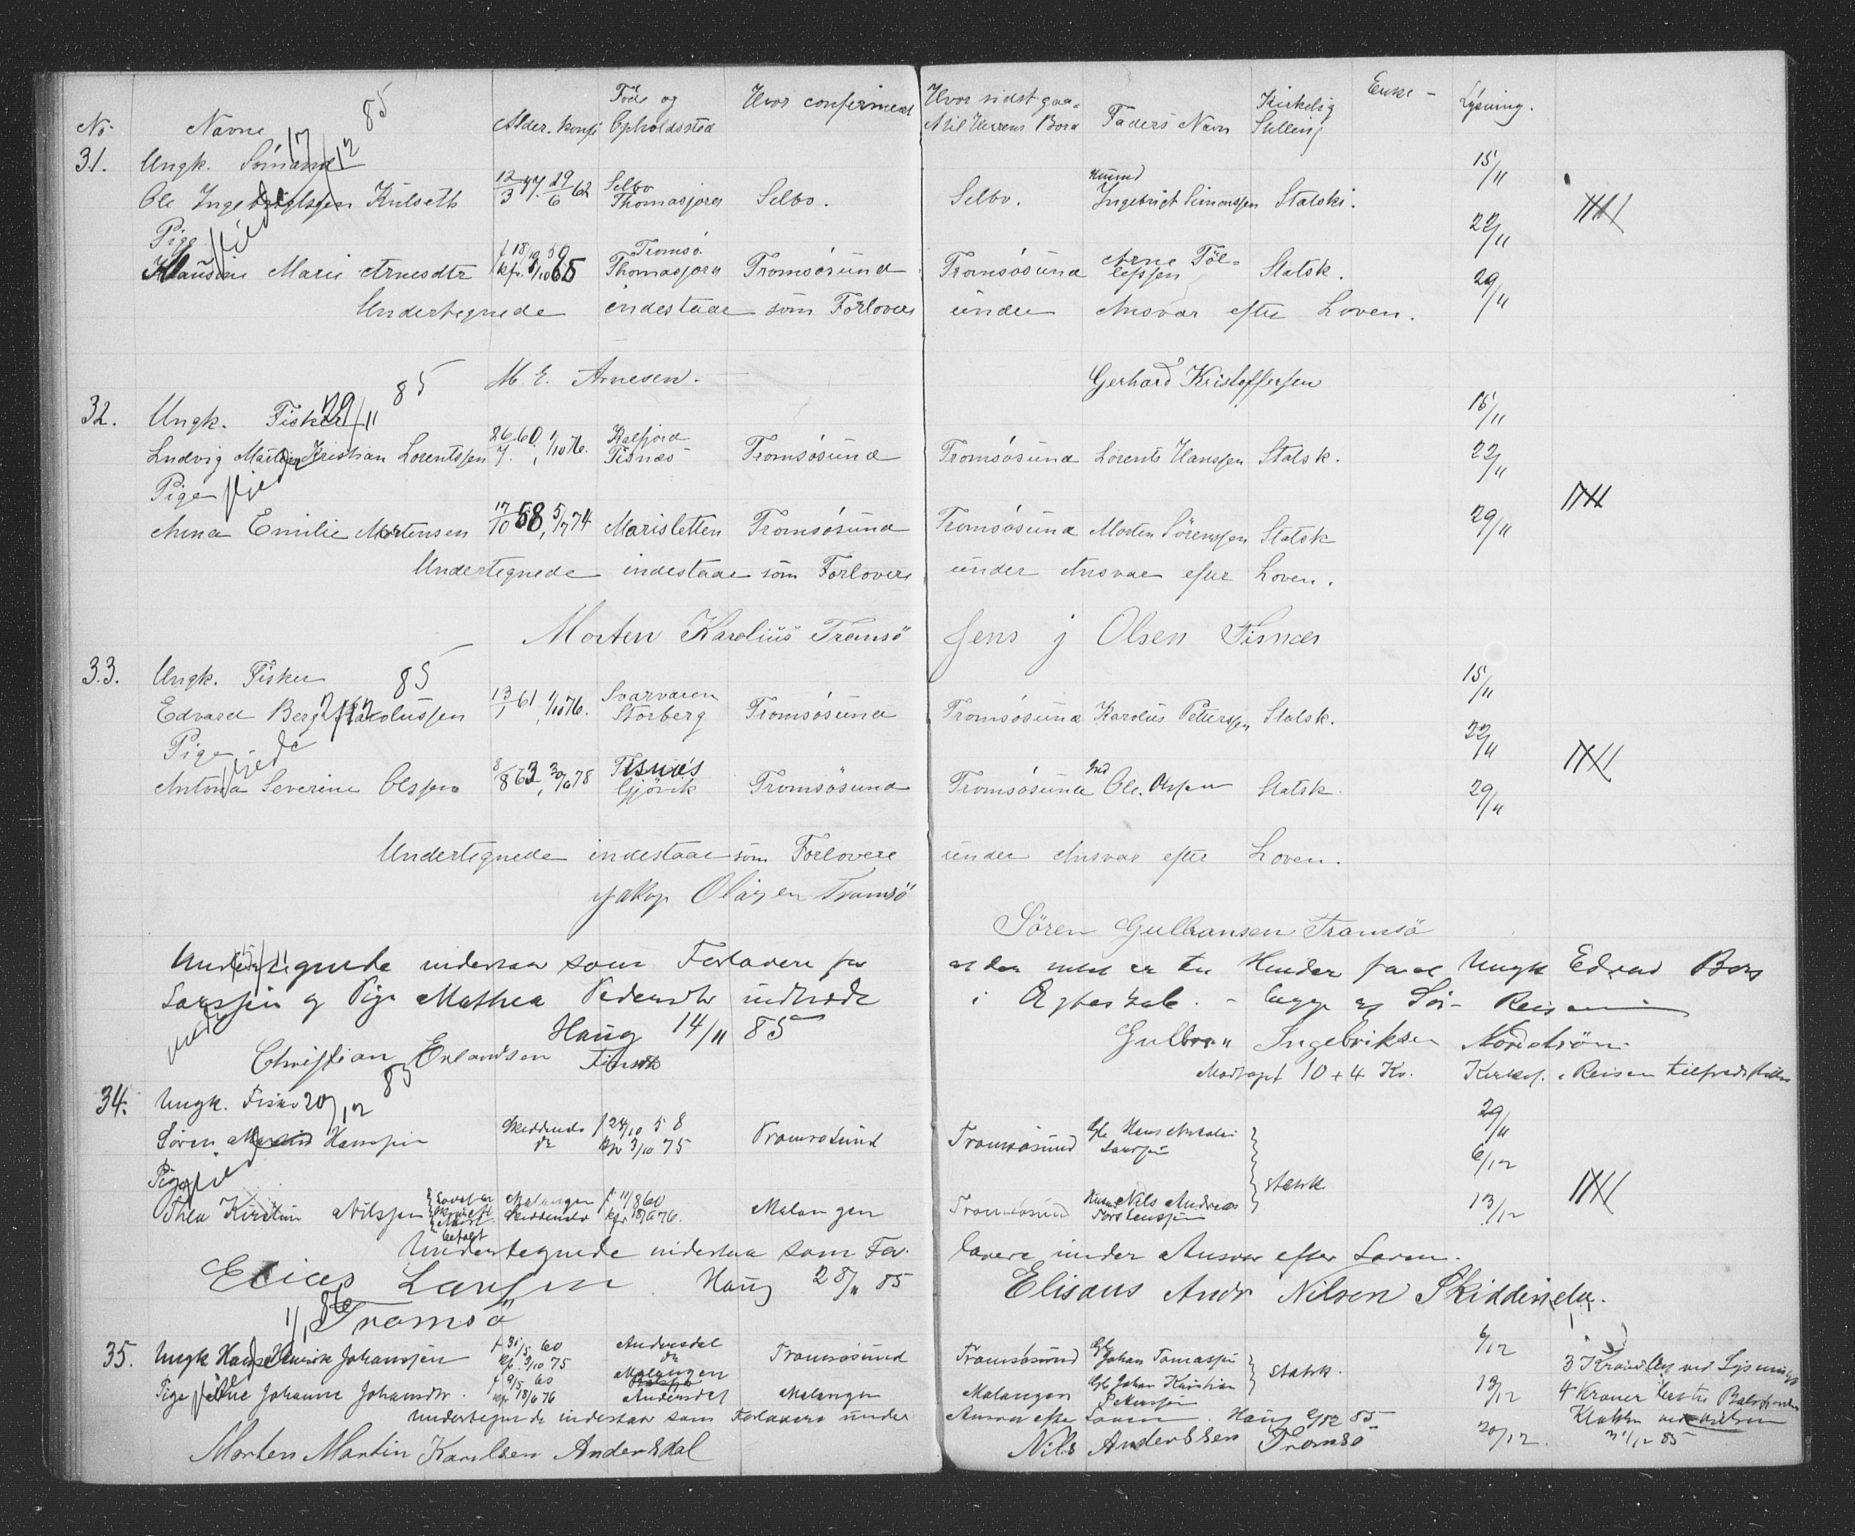 No. Navne Alder. Konf. Föde og Opholdssted Hvor confirmeret Hvor sidst gaaet til Herrens Bord Faders Navn Kirkelig Stilling Enke - Lysning.
31. Ungk. Sömand 17/12 85
Ole Ingebrigtsen Kulseth 12/3 47. 29/6 62 Selbo Thomasjord Selbo. Selbo. Husmd Ingebrigt Simonssen Statski. 15/11
Pige 22/11
Hansine Marie Arnesdtr f 18/10 50 kfr. 8/10 65 Tromsö. Thomasjord Tromsösund Tromsösund Arne Töllefssen Statsk. 29/11
Undertegnede indestaae som Forlovere under Ansvar efter Loven.
M. E. Arnesen. Gerhard Kristoffersen
32. Ungk. Fisker 29/11 85 15/11
Ludvig Martin Kristian Lorentssen 26/7. 60, 1/10 76. Kalfjord Tisnæs Tromsösund Tromsösund Lorents Hanssen Statsk. 22/11
Pige viede
Anna Emilie Mortensen 17/10 58, 5/7 74 Marisletten Tromsösund Tromsösund Morten Sörenssen Statsk 29/11
Undertegnede indestaae som Forlovere under Ansvar efter Loven.
Morten Karolius Tromsö Jens j Olsen Tisnæs
33. Ungk. Fisker 85 15/11
Edvard Berg Karolussen 13/1 61, 1/10 76. Svarvaren Storberg Tromsösund Tromsösund Karolus Petterssen Statsk. 22/11
Pige viede
Antona Severine Olssen 8/8 63, 30/6 78 Tisnæs Gjövik Tromsösund Tromsösund Ind Ole Olssen Statsk. 29/11
Undertegnede indestaae som Forlovere under Ansvar efter Loven.
Jakop Olaysen Tromsö
Sören Gulbransen Tromsö
Undertegnede indestaa som Forlovere for at der intet er til Hinder for at Ungk Edvad Berg
Larssen og Pige Mathea Pedersdtr indtræde i Ægteskab. - Lygge og Sör- Reisen
Haug 14/11 85
Christian Erlandsen Gulbran Ingebriksen Nordström
Modtaget 10 + 4 Kr. Kirkes. i Reisen
34. Ungk. Fisker 20/12 85 29/11
Sören Martin Hanssen Skiddendo do f 24/10 58 kfr 3/10 75 Tromsösund Tromsösund Gb Hans Larssen 6/12
Pige
Thea Kirstine Nilssen Malangen Skiddendo f 11/8 60 kfr 18/6 76. Malangen Tromsösund Nils Andreas Torstenssen statsk 13/12
betalt
Undertegnede indestaa som Forlovere under Ansvar efter Loven.
Elias Larssen Haug 28/11 85 Elisæus Andr Nilsen Skiddendu.
Tromsö
1/1 86
35. Ungk Hans Henrik Johanssen f 31/5 60 kfr. 3/10 75 Andersdal do Tromsösund Tromsösund Gb Johan Tomassen statsk. 6/12 3 Kroner ved Lysning
Pige Ane Johanne Johansdtr. f 9/5 60 kfr 18/6 76 Malangen Andersdal Malangen Malangen Gb Johan Kristian Petterssen 13/12 4 Kroner
Undertegnede indestaa som Forlovere under Ansvar efter Loven. Haug 6/12 85 Klokken
Morten Martin Karulsen Andersdal Nils Anderssen Tromsö 20/12. 31/12 85